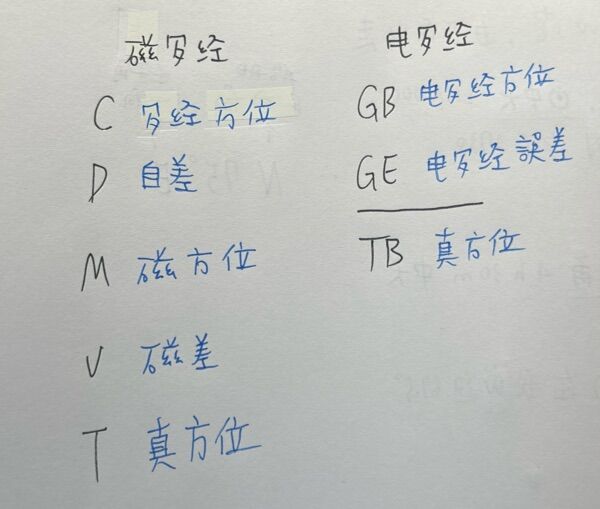 磁罗经
C 罗经方位
D 自差
M 磁方位
V 磁差
T 真方位
电罗经
GB 电罗经方位
GE 电罗经誤差
TB 真方位